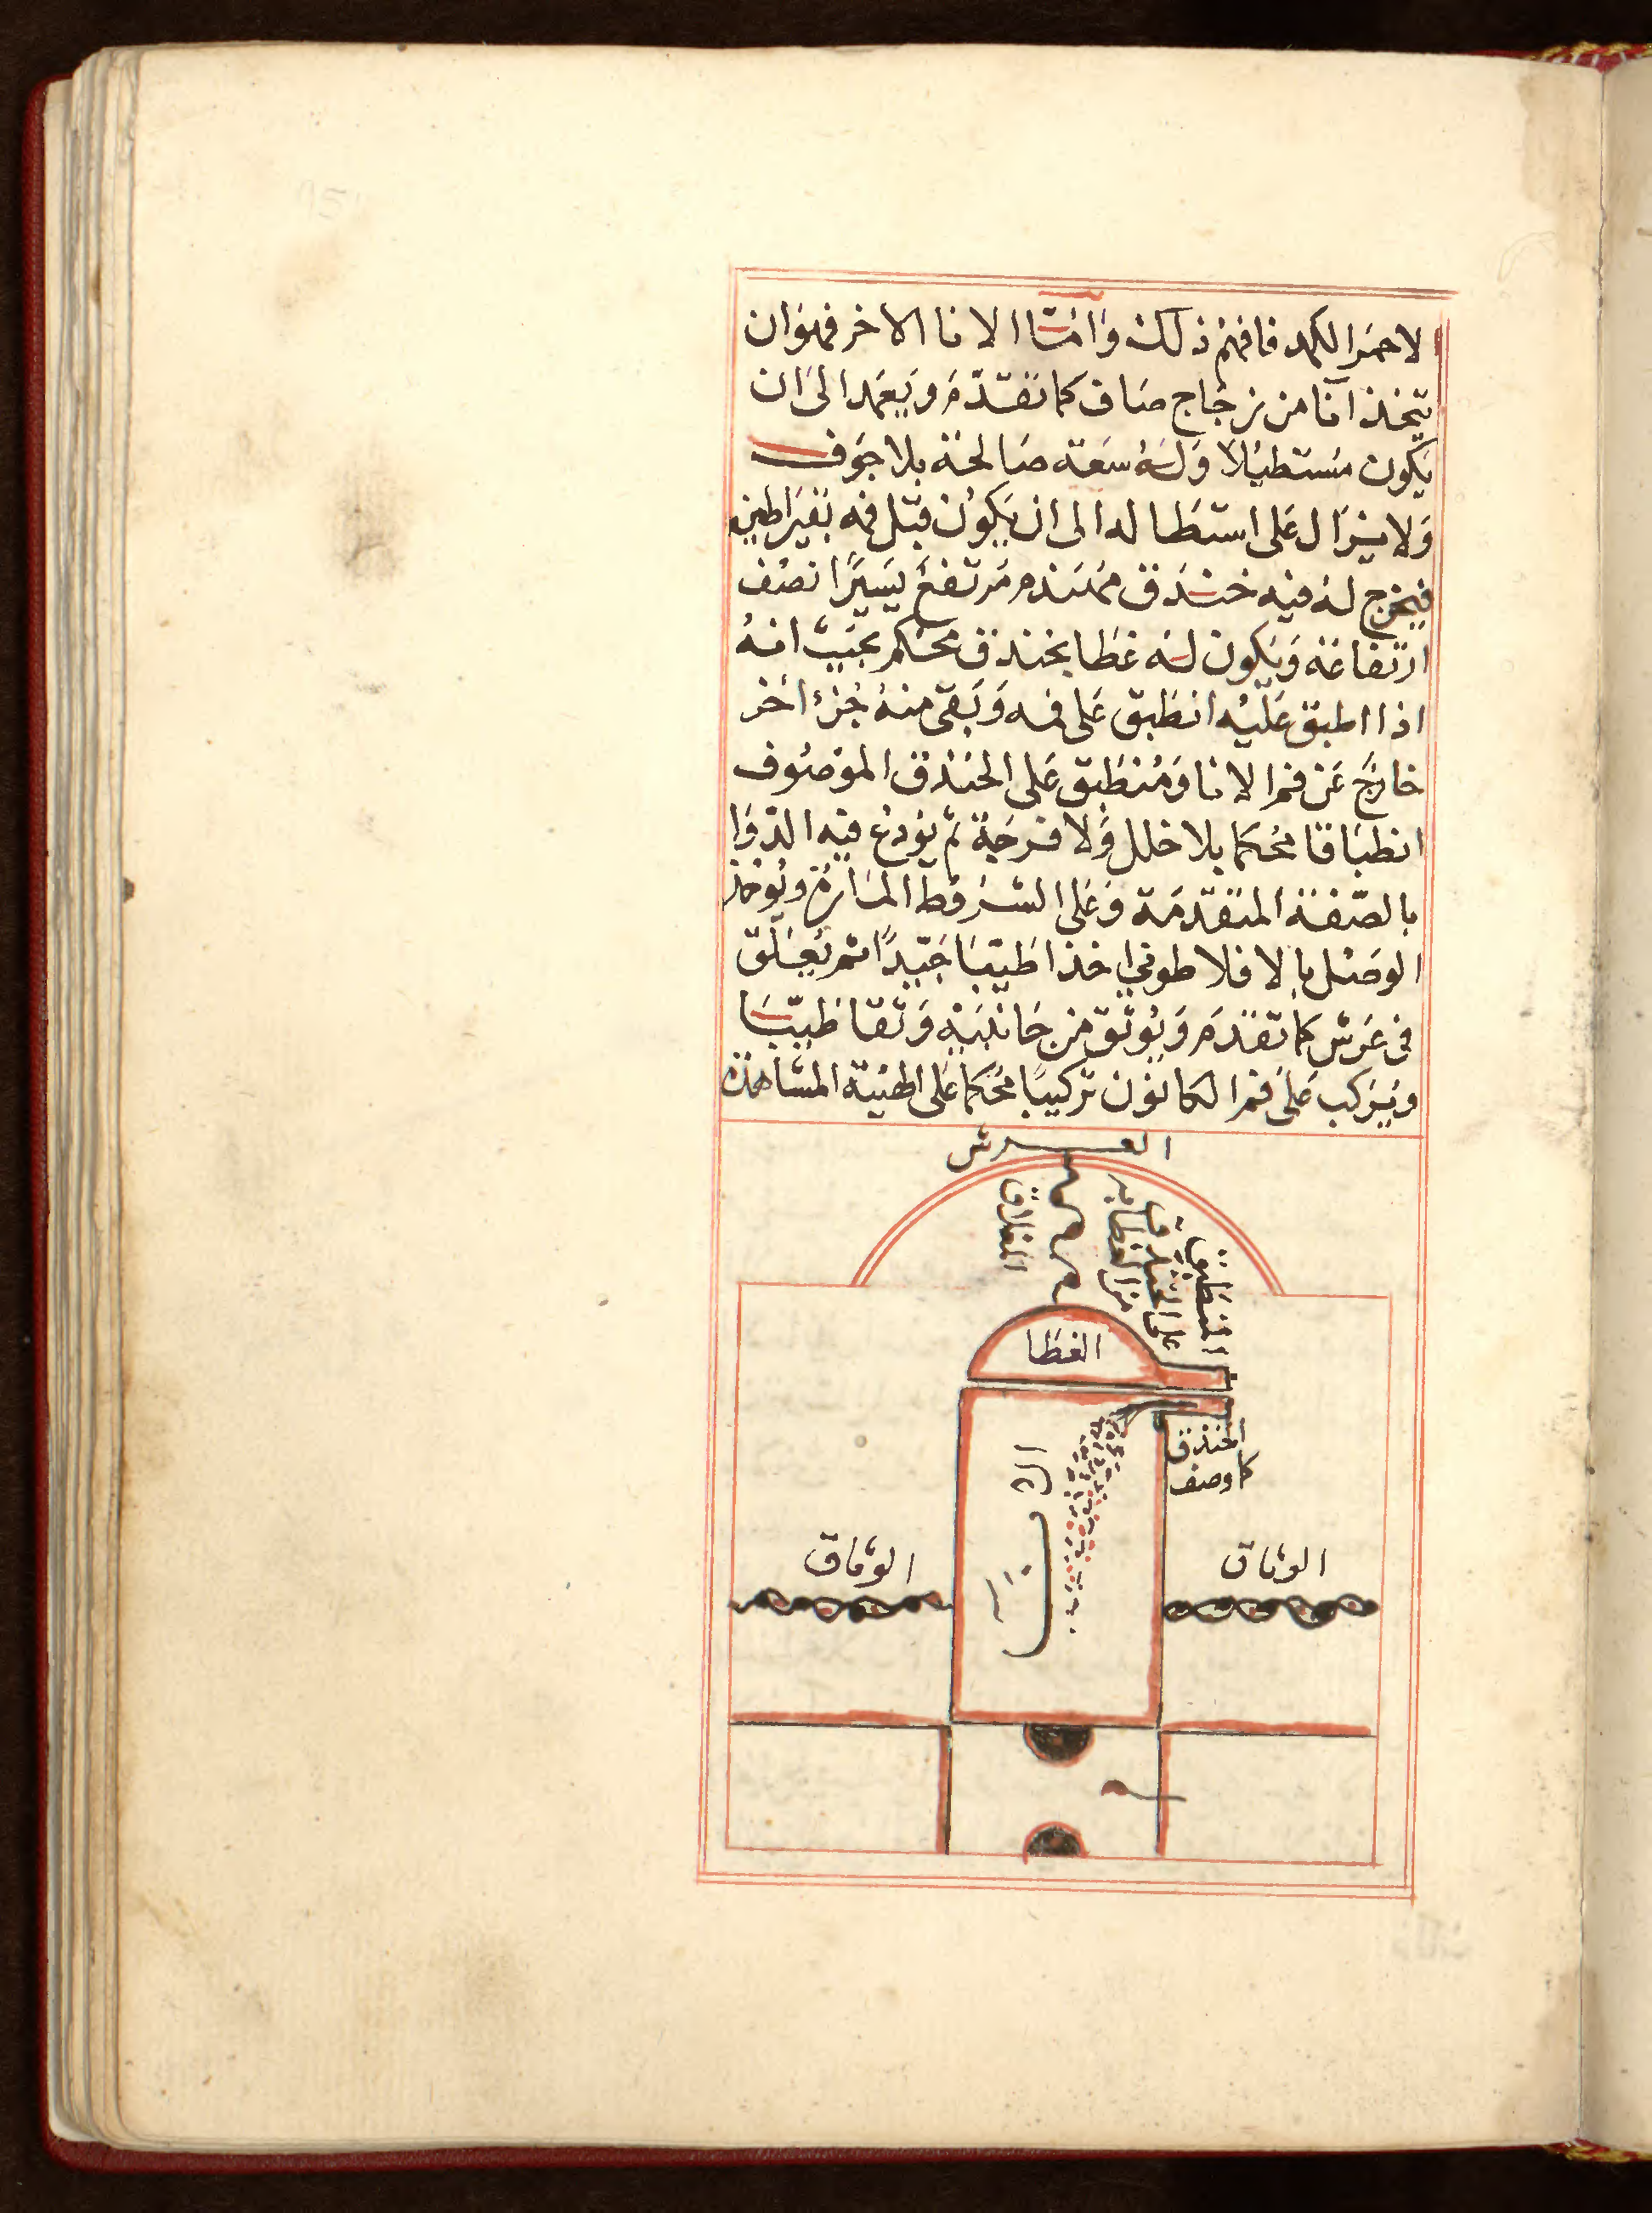 لاحمر الكمد فافهم ذلك وَامّا الانا الاخر فهوَان
يتخذ انا من زجَاج صَاف كما تقدّم وَيعمد الىَ ان
يكون مستطيلاً وَلهُ سعَة صَالحَة بلا جوَف
وَلا يزَال عَلى استطَاله الى ان يكون قبل فمه بقيراطين
فيخرج له فيه خندَق ممتد مرتفع يَسيرًا نصف
ارتفاعَه وَيكون له غطَا بخندق محكم بحيث انهُ
اذا اطبق عَليْه انطَبق عَلى فمه وَبَقى منهُ جُزء اخر
خارج عَن فم الانا وَمُنطَبق عَلى الخندق الموَصُوف
انطبَاقا مُحكما بلا خلل وَلا فرجَة ثم يودع فيه الدوَا
بالصّفة المتقدّمَة وَعَلى الشروط المارة ويُوخذ
الوصَل بالافلاطوني اخذا طَيبًا جَيّدًا ثم يُعَلق
في عَرش كما تقدم وَيُوثق من جَانبيَه وَثقا طَيبًا
ويَركب عَلى فم الكانون تركيبًا محُكما عَلى الهيئة المشاهدَة
العرش
المغلاق
المنطبق
على الخندق
من الغطا
الغطا
الخندق
كما وصف
الانا
الوثاق
الوثاق